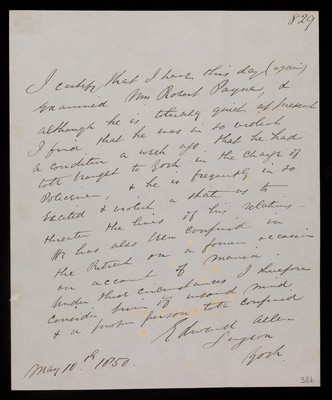 829
I certify that I have this day (again)
examined Wm Robert Payne, &
although he is tolerably quiet at present
I find that he was in so violent
a condition a week ago that he had
to be brought to York in the charge of
Policemen, & he is frequently in so
excited & violent a state as to
threaten the lives of his relatives.
He has also been confined in
the Retreat on a former occasion
on account of mania.
Under these circumstances I therefore
consider him of unsound mind
& a proper person to be confined
Edward Allen
Surgeon
York.
May 10.th 1850.
386